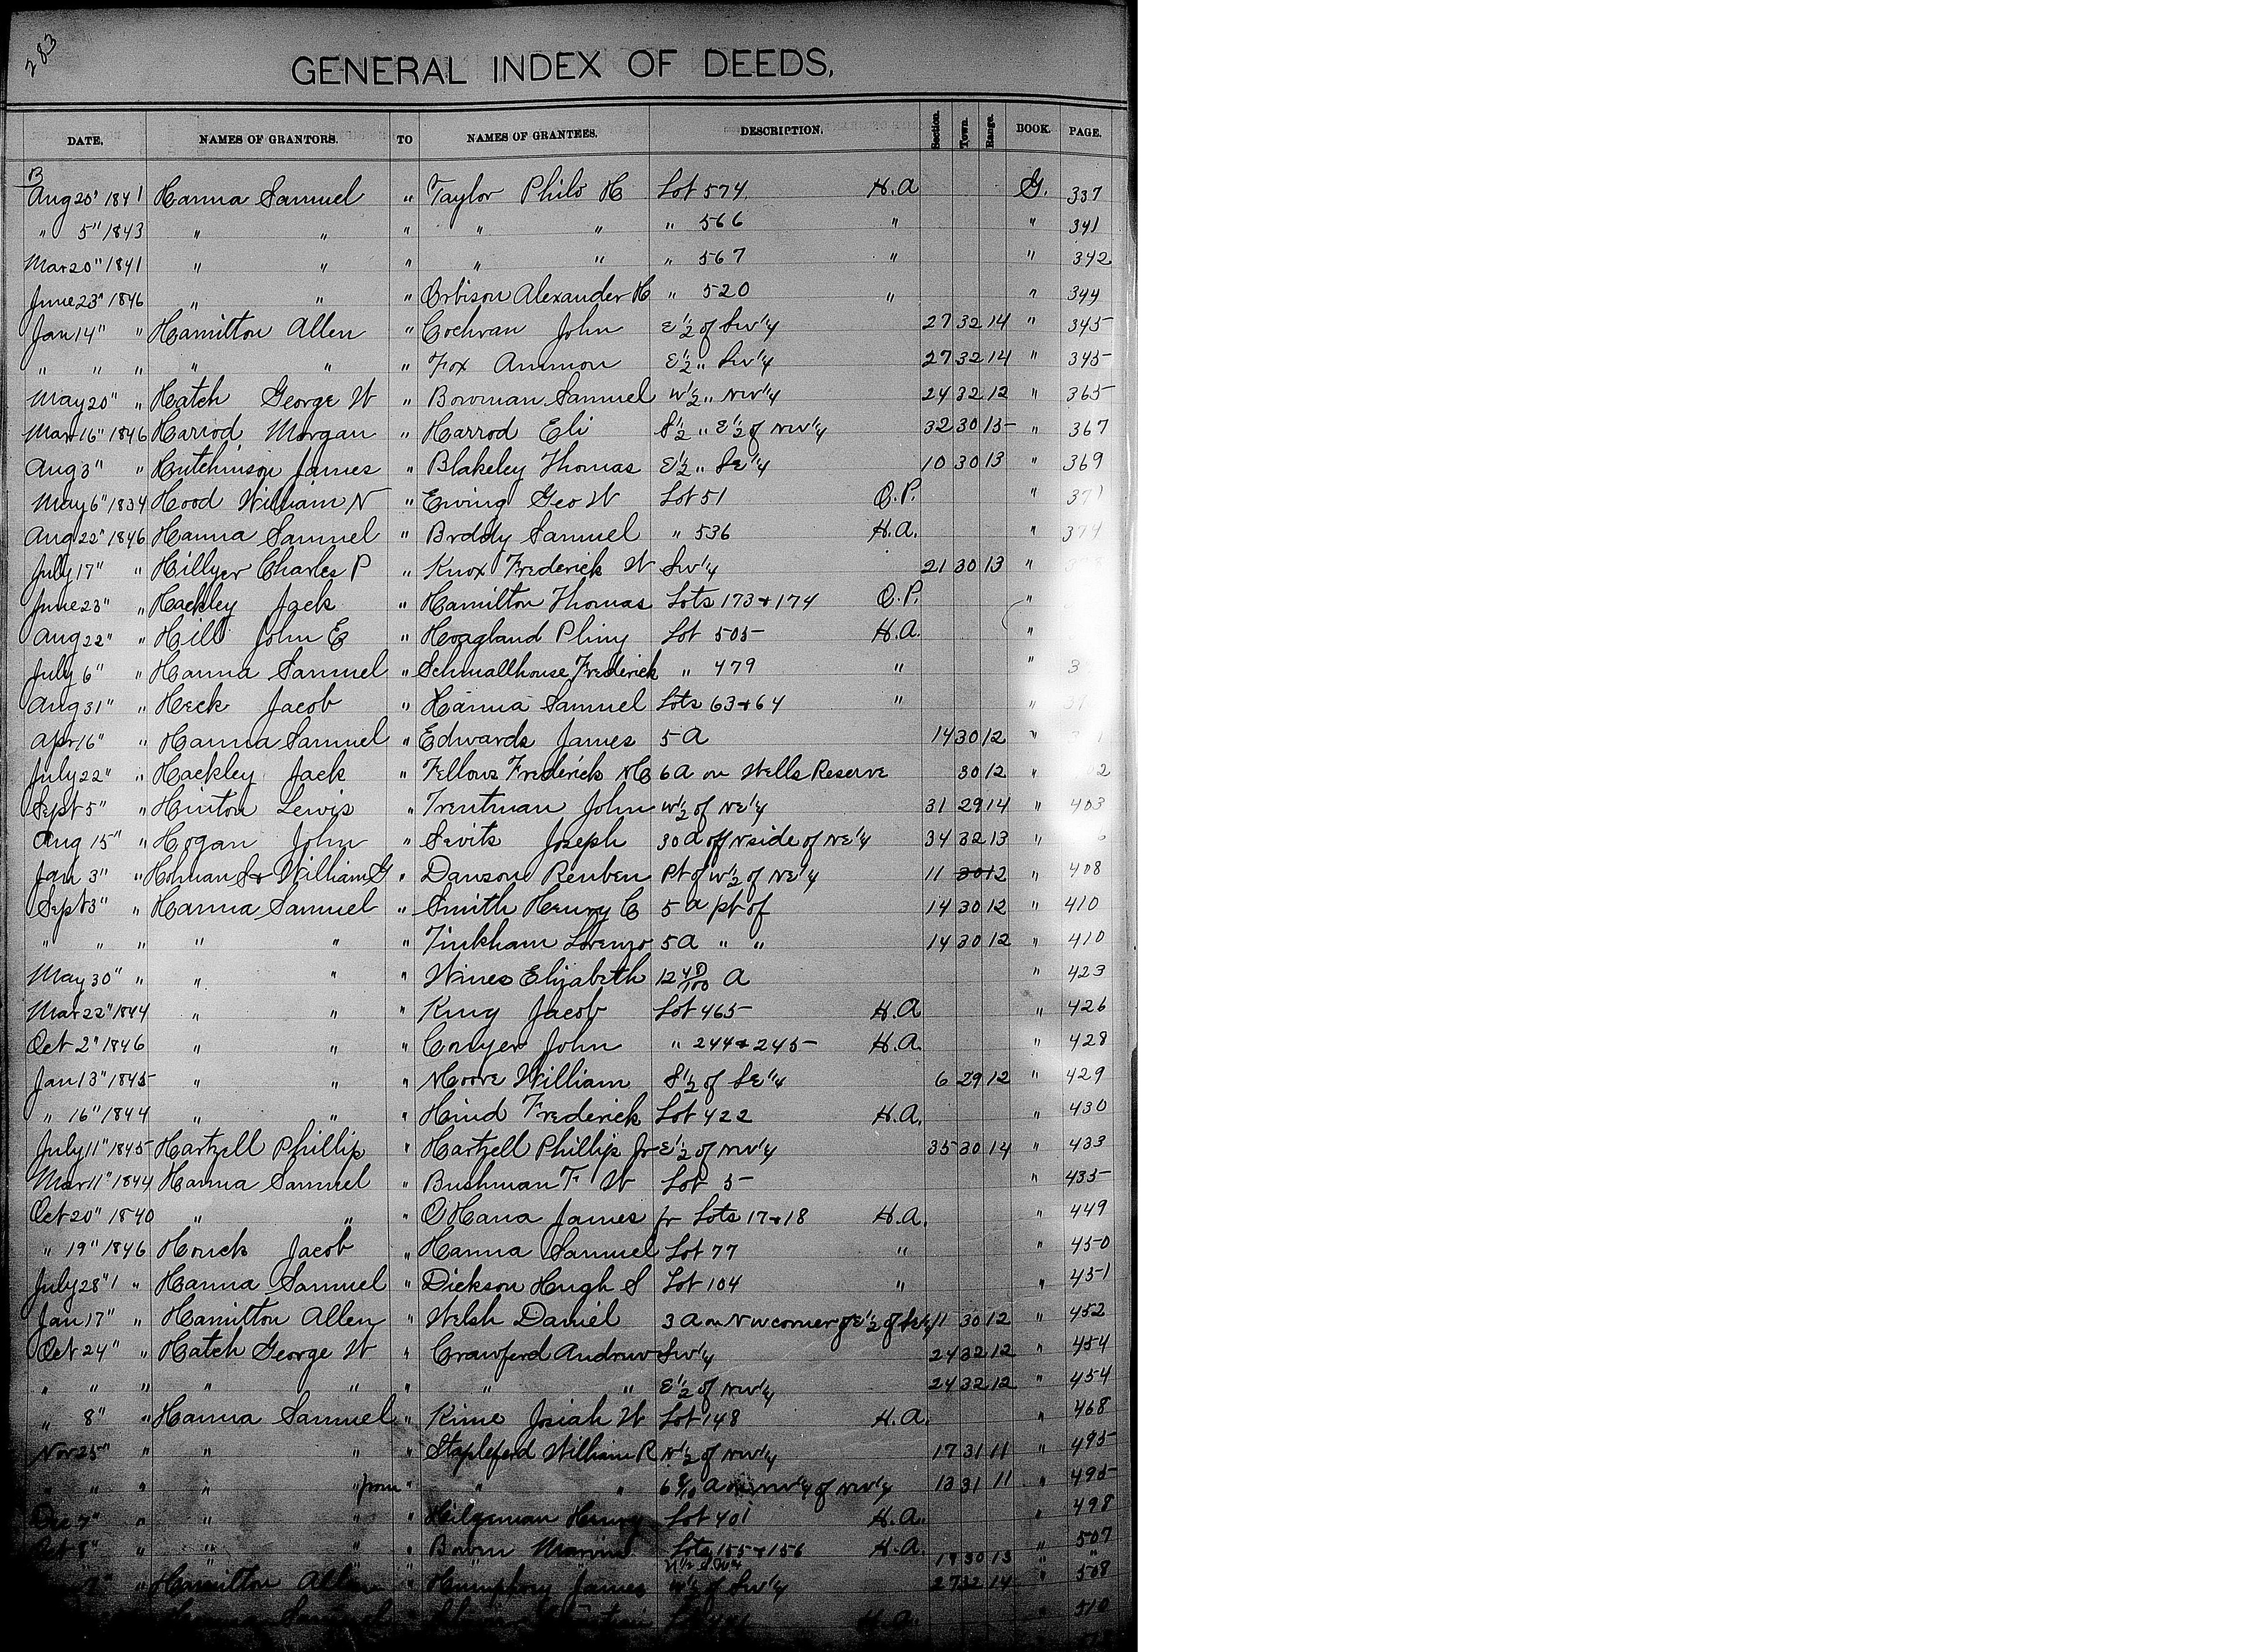 283
GENERAL INDEX OF DEEDS.
DATE. NAMES OF GRANTORS. TO NAMES OF GRANTEES. DESCRIPTION. Section. Town. Range. BOOK. PAGE.
B
Aug 20" 1841 Hanna Samuel " Taylor Philo H Lot 574 H.A G. 337
" 5" 1843 " " " " " " 566 " " 341
Mar 20" 1841 " " " " " " 567 " " 342
June 23" 1846 " " " Orbison Alexander H " 520 " " 344
Jan 14" " Hamilton Allen " Cochran John E 1/2 of Sw 1/4 27 32 14 " 345
" " " " " " Fox Ammon E 1/2 " Sw 1/4 27 32 14 " 345
May 20" " Hatch George W " Bowman Samuel W 1/2 " NW 1/4 24 32 12 " 365
Mar 16" 1846 Harrod Morgan " Harrod Eli S 1/2 " E 1/2 of NW 1/4 32 30 15 " 367
Aug 3" " Hutchinson James " Blakeley Thomas E 1/2 " SE 1/4 10 30 13 " 369
May 6" 1834 Hood William N " Ewing Geo W Lot 51 O.P. " 371
Aug 22" 1846 Hanna Samuel " Broddy Samuel " 536 H.A. " 374
July 17" " Hillyer Charles P " Knox Frederick W Sw 1/4 21 30 13 "
June 23" " Hackley Jack " Hamilton Thomas Lots 173 + 174 O.P. "
Aug 22" " Hill John E " Hoagland Pliny Lot 505 H.A. "
July 6" " Hanna Samuel " Schmallhouse Frederick " 479 " " 3
Aug 31" " Heck Jacob " Hanna Samuel Lots 63 + 64 " " 37
Apr 16" " Hanna Samuel " Edwards James 5 A 14 30 12 "
July 22" " Hackley Jack " Fellows Frederick M 6 A on Wells Reserve 30 12 " 2
Sept 5" " Hinton Lewis " Trentman John W 1/2 of NE 1/4 31 29 14 " 403
Aug 15" " Hogan John " Sevits Joseph 30 A off N side of NE 1/4 34 32 13 "
Jan 3" " Holman Sr William G " Dawson Reuben Pt of W 1/2 of NE 1/4 11 30 12 " 408
Sept 3" " Hanna Samuel " Smith Henry C 5 A pt of 14 30 12 " 410
" " " " " " Tinkham Lorenzo 5 A " " 14 30 12 " 410
May 30" " " " " Wines Elizabeth 12 40/100 A " 423
Mar 22" 1844 " " " King Jacob Lot 465 H.A " 426
Oct 2" 1846 " " " Conyer John " 244 + 245 H.A. " 428
Jan 13" 1845 " " " Moore William S 1/2 of SE 1/4 6 29 12 " 429
" 16" 1844 " " " Hind Frederick Lot 422 H.A. " 430
July 11" 1845 Hartzell Phillip " Hartzell Phillip Jr E 1/2 of NW 1/4 35 30 14 " 433
Mar 11" 1844 Hanna Samuel " Bushman F W Lot 5 " 435
Oct 20" 1840 " " " O Hara James fr Lots 17 + 18 H.A. " 449
" 19" 1846 Houck Jacob " Hanna Samuel Lot 77 " " 450
July 28" " Hanna Samuel " Dickson Hugh S Lot 104 " " 451
Jan 17" " Hamilton Allen " Welsh Daniel 3 A on NW corner of E 1/2 of Se 1/4 11 30 12 " 452
Oct 24" " Hatch George W " Crawford Andrew Sw 1/4 24 32 12 " 454
" " " " " " " " E 1/2 of NW 1/4 24 32 12 " 454
" 8" " Hanna Samuel " Kime Josiah W Lot 148 H.A. " 468
Nov 25" " " " " Stapleford William R N 1/2 of NW 1/4 17 31 11 " 495
" " " " " from " " " 6 8/10 A NW 1/4 of NW 1/4 13 31 11 " 495
Dec 7" " " " " Hilgeman Henry Lot 401 H.A. " 498
Oct 8" " " " " Bowen Marvin Lots 155 + 156 H.A. " 507
19 30 13 " "
" Hamilton Allen " Humphrey James W 1/2 of Sw 1/4 27 32 14 " 508
Hanna Samuel " H.A. " 510